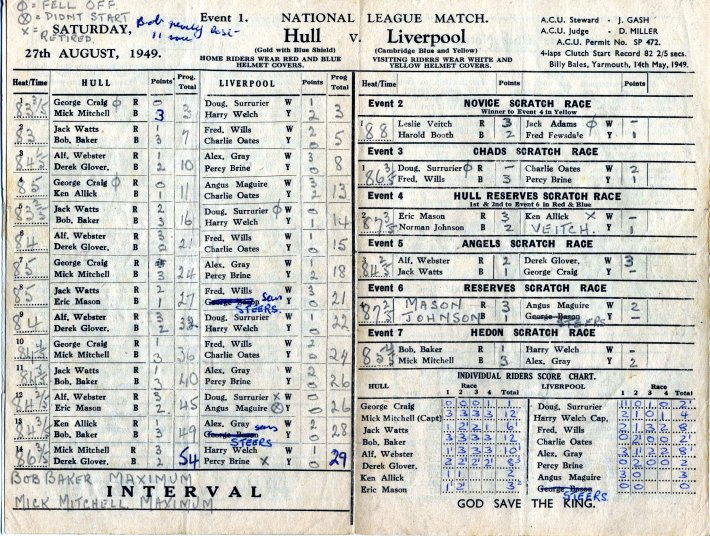 O = FELL OFF
⊗ = DIDNT START
X = RETIRED
SATURDAY,
27th AUGUST, 1949.
Event 1.
NATIONAL LEAGUE MATCH.
Hull v. Liverpool
(Gold with Blue Shield) (Cambridge Blue and Yellow)
HOME RIDERS WEAR RED AND BLUE HELMET COVERS.
VISITING RIDERS WEAR WHITE AND YELLOW HELMET COVERS.
A.C.U. Steward - J. GASH
A.C.U. Judge - D. MILLER
A.C.U. Permit No. SP 472.
4-laps Clutch Start Record 82 2/5 secs.
Billy Bales, Yarmouth, 14th May, 1949.
Heat/Time HULL Points Prog. Total LIVERPOOL Points Prog. Total
1 George Craig R 0 Doug. Surrurier W 1
Mick Mitchell B 3 3 Harry Welch Y 2 3
2 83 Jack Watts R 1 Fred. Wills W
Bob. Baker B 3 7 Charlie Oates Y 5
3 Alf. Webster R 1 Alex. Gray W 3
Derek Glover. B 2 10 Percy Brine Y 0 8
4 85 George Craig R 0 Angus Maguire W 3
Ken Allick B 1 11 Charlie Oates Y 2 13
5 Jack Watts R 2 Doug. Surrurier W 0
Bob. Baker B 3 16 Harry Welch Y 1 14
6 84 Alf. Webster R 3 Fred. Wills W 1
Derek Glover. B 2 21 Charlie Oates Y 0 15
7 85 George Craig R Alex. Gray W 1
Mick Mitchell B 3 24 Percy Brine Y 2 18
8 85 Jack Watts R 2 Fred. Wills W 3
Eric Mason B 1 27 George Bason Y STEERS. 0 21
9 84 Alf. Webster R 3 Doug. Surrurier W 1
Derek Glover. B 2 32 Harry Welch Y 0 22
10 George Craig R 1 Fred. Wills W 2
Mick Mitchell B 3 36 Charlie Oates Y 0 24
11 Jack Watts R 1 Alex. Gray W 2
Bob. Baker B 3 40 Percy Brine Y 0 26
12 Alf. Webster R 3 Doug. Surrurier X W 0
Eric Mason B 2 45 Angus Maguire ⊗ Y 0 26
13 Ken Allick R 1 Alex. Gray W 2
Bob. Baker B 3 49 George Bason Y STEERS 0 28
14 Mick Mitchell R 3 Harry Welch W 1
Derek Glover. B 2 54 Percy Brine X Y 0 29
BOB BAKER MAXIMUM
MICK MITCHELL MAXIMUM
INTERVAL
Heat/Time Points Points
Event 2 NOVICE SCRATCH RACE
Winner to Event 4 in Yellow
1 88 Leslie Veitch R 3 Jack Adams W -
Harold Booth B 2 Fred Fewsdale Y 1
Event 3 CHADS SCRATCH RACE
1 Doug. Surrurier R - Charlie Oates W 2
Fred. Wills B 3 Percy Brine Y 1
Event 4 HULL RESERVES SCRATCH RACE
1st & 2nd to Event 6 in Red & Blue
2 Eric Mason R 3 Ken Allick X W -
Norman Johnson B 2 VEITCH. Y 1
Event 5 ANGELS SCRATCH RACE
3 Alf. Webster R 2 Derek Glover. W 3
Jack Watts B 1 George Craig Y -
Event 6 RESERVES SCRATCH RACE
4 MASON R 3 Angus Maguire W 2
JOHNSON B 1 George Bason Y STEERS -
Event 7 HEDON SCRATCH RACE
5 Bob. Baker R 1 Harry Welch W -
Mick Mitchell B 3 Alex. Gray Y 2
INDIVIDUAL RIDERS SCORE CHART.
HULL Race 1 2 3 4 Total LIVERPOOL Race 1 2 3 4 Total
George Craig 0 0 0 1 1 Doug. Surrurier 1 0 1 0 2
Mick Mitchell (Capt) 3 3 3 3 12 Harry Welch Cap. 2 1 0 1 4
Jack Watts 1 2 2 1 6 Fred. Wills 2 1 3 2 8
Bob. Baker 3 3 3 3 12 Charlie Oates 0 2 0 0 2
Alf. Webster 1 3 3 3 10 Alex. Gray 3 1 2 2 8
Derek Glover. 2 2 2 2 8 Percy Brine 0 2 0 0 2
Ken Allick 1 1 2 Angus Maguire 3 0 3
Eric Mason 1 2 3 George Bason STEERS. 0 0
GOD SAVE THE KING.